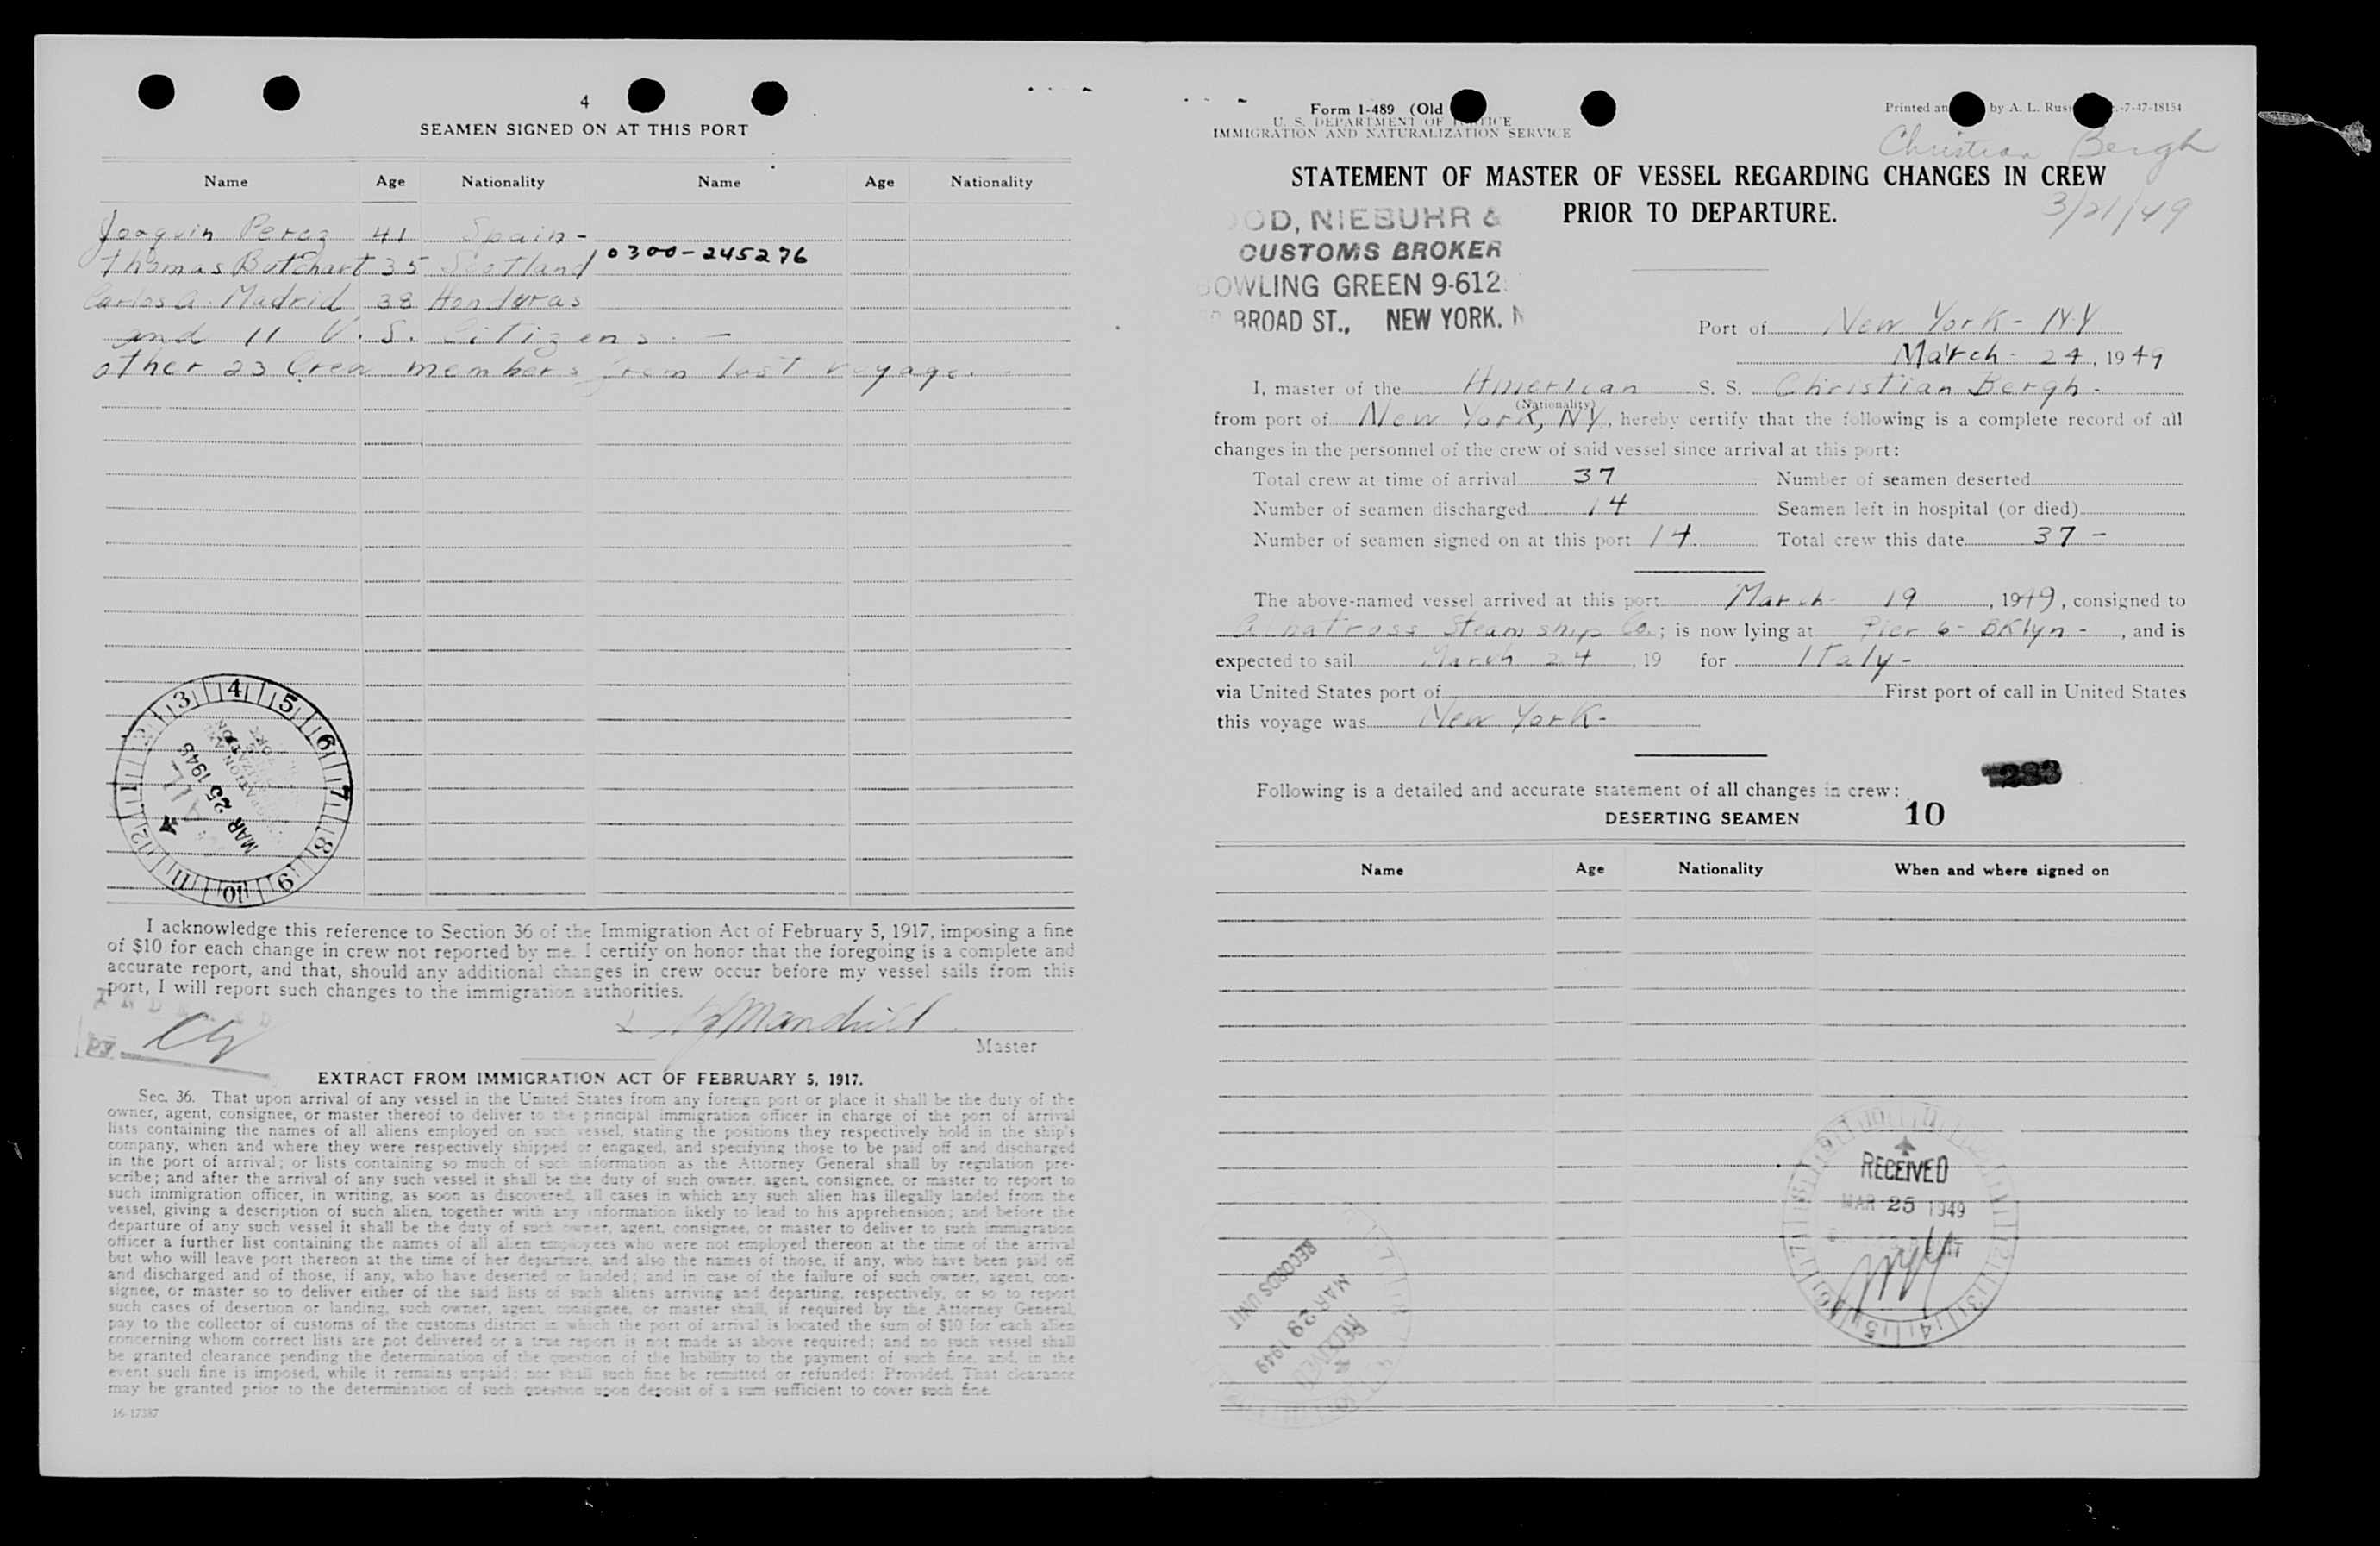 4
SEAMEN SIGNED ON AT THIS PORT
Name Age Nationality Name Age Nationality
Joaquin Perez 41 Spain -
Thomas Butchart 35 Scotland 0300-245276
Carlos A. Madrid 38 Honduras
and 11 U. S. Citizens. -
other 23 Crew members from last voyage. -
3 4 5 6 7 8 9 10 11 12 1 2
MAR 25 1948
I acknowledge this reference to Section 36 of the Immigration Act of February 5, 1917, imposing a fine
of $10 for each change in crew not reported by me. I certify on honor that the foregoing is a complete and
accurate report, and that, should any additional changes in crew occur before my vessel sails from this
port, I will report such changes to the immigration authorities.
Master
EXTRACT FROM IMMIGRATION ACT OF FEBRUARY 5, 1917.
Sec. 36. That upon arrival of any vessel in the United States from any foreign port or place it shall be the duty of the
owner, agent, consignee, or master thereof to deliver to the principal immigration officer in charge of the port of arrival
lists containing the names of all aliens employed on such vessel, stating the positions they respectively hold in the ship's
company, when and where they were respectively shipped or engaged, and specifying those to be paid off and discharged
in the port of arrival; or lists containing so much of such information as the Attorney General shall by regulation pre-
scribe; and after the arrival of any such vessel it shall be the duty of such owner, agent, consignee, or master to report to
such immigration officer, in writing, as soon as discovered, all cases in which any such alien has illegally landed from the
vessel, giving a description of such alien, together with any information likely to lead to his apprehension; and before the
departure of any such vessel it shall be the duty of such owner, agent, consignee, or master to deliver to such immigration
officer a further list containing the names of all alien employees who were not employed thereon at the time of the arrival
but who will leave port thereon at the time of her departure, and also the names of those, if any, who have been paid off
and discharged and of those, if any, who have deserted or landed; and in case of the failure of such owner, agent, con-
signee, or master so to deliver either of the said lists of such aliens arriving and departing, respectively, or so to report
such cases of desertion or landing, such owner, agent, consignee, or master shall, if required by the Attorney General,
pay to the collector of customs of the customs district in which the port of arrival is located the sum of $10 for each alien
concerning whom correct lists are not delivered or a true report is not made as above required; and no such vessel shall
be granted clearance pending the determination of the question of the liability to the payment of such fine, and, in the
event such fine is imposed, while it remains unpaid; nor shall such fine be remitted or refunded: Provided, That clearance
may be granted prior to the determination of such question upon deposit of a sum sufficient to cover such fine.
16-17387
Form 1-489 (Old
U. S. DEPARTMENT OF JUSTICE
IMMIGRATION AND NATURALIZATION SERVICE
Printed an by A. L. Rus -7-47-18154
Christian Bergh
3/21/49
STATEMENT OF MASTER OF VESSEL REGARDING CHANGES IN CREW
PRIOR TO DEPARTURE.
OD, NIEBUHR &
CUSTOMS BROKER
BOWLING GREEN 9-612
BROAD ST., NEW YORK, N
Port of New York - N.Y
March - 24, 1949
I, master of the American S. S. Christian Bergh -
(Nationality)
from port of New York, NY, hereby certify that the following is a complete record of all
changes in the personnel of the crew of said vessel since arrival at this port:
Total crew at time of arrival 37 Number of seamen deserted
Number of seamen discharged 14 Seamen left in hospital (or died)
Number of seamen signed on at this port 14. Total crew this date 37 -
The above-named vessel arrived at this port March - 19, 1949, consigned to
Steamship Co.; is now lying at Pier 6 - BKlyn -, and is
expected to sail March 24, 19 for Italy -
via United States port of First port of call in United States
this voyage was New York -
Following is a detailed and accurate statement of all changes in crew:
DESERTING SEAMEN 10
Name Age Nationality When and where signed on
RECEIVED
MAR 25 1949
RECORDS UNIT
MAR 29 1949
RECEIVED